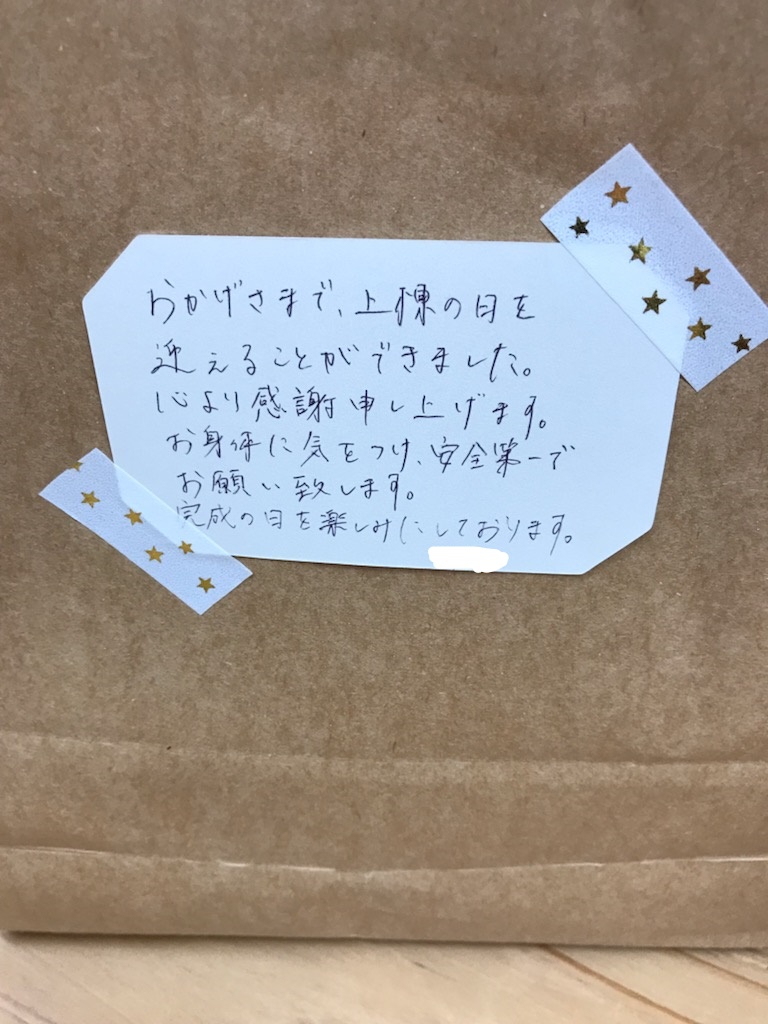 おかげさまで、上棟の日を
迎えることができました。
心より感謝申し上げます。
お身体に気をつけ、安全第一で
お願い致します。
完成の日を楽しみにしております。